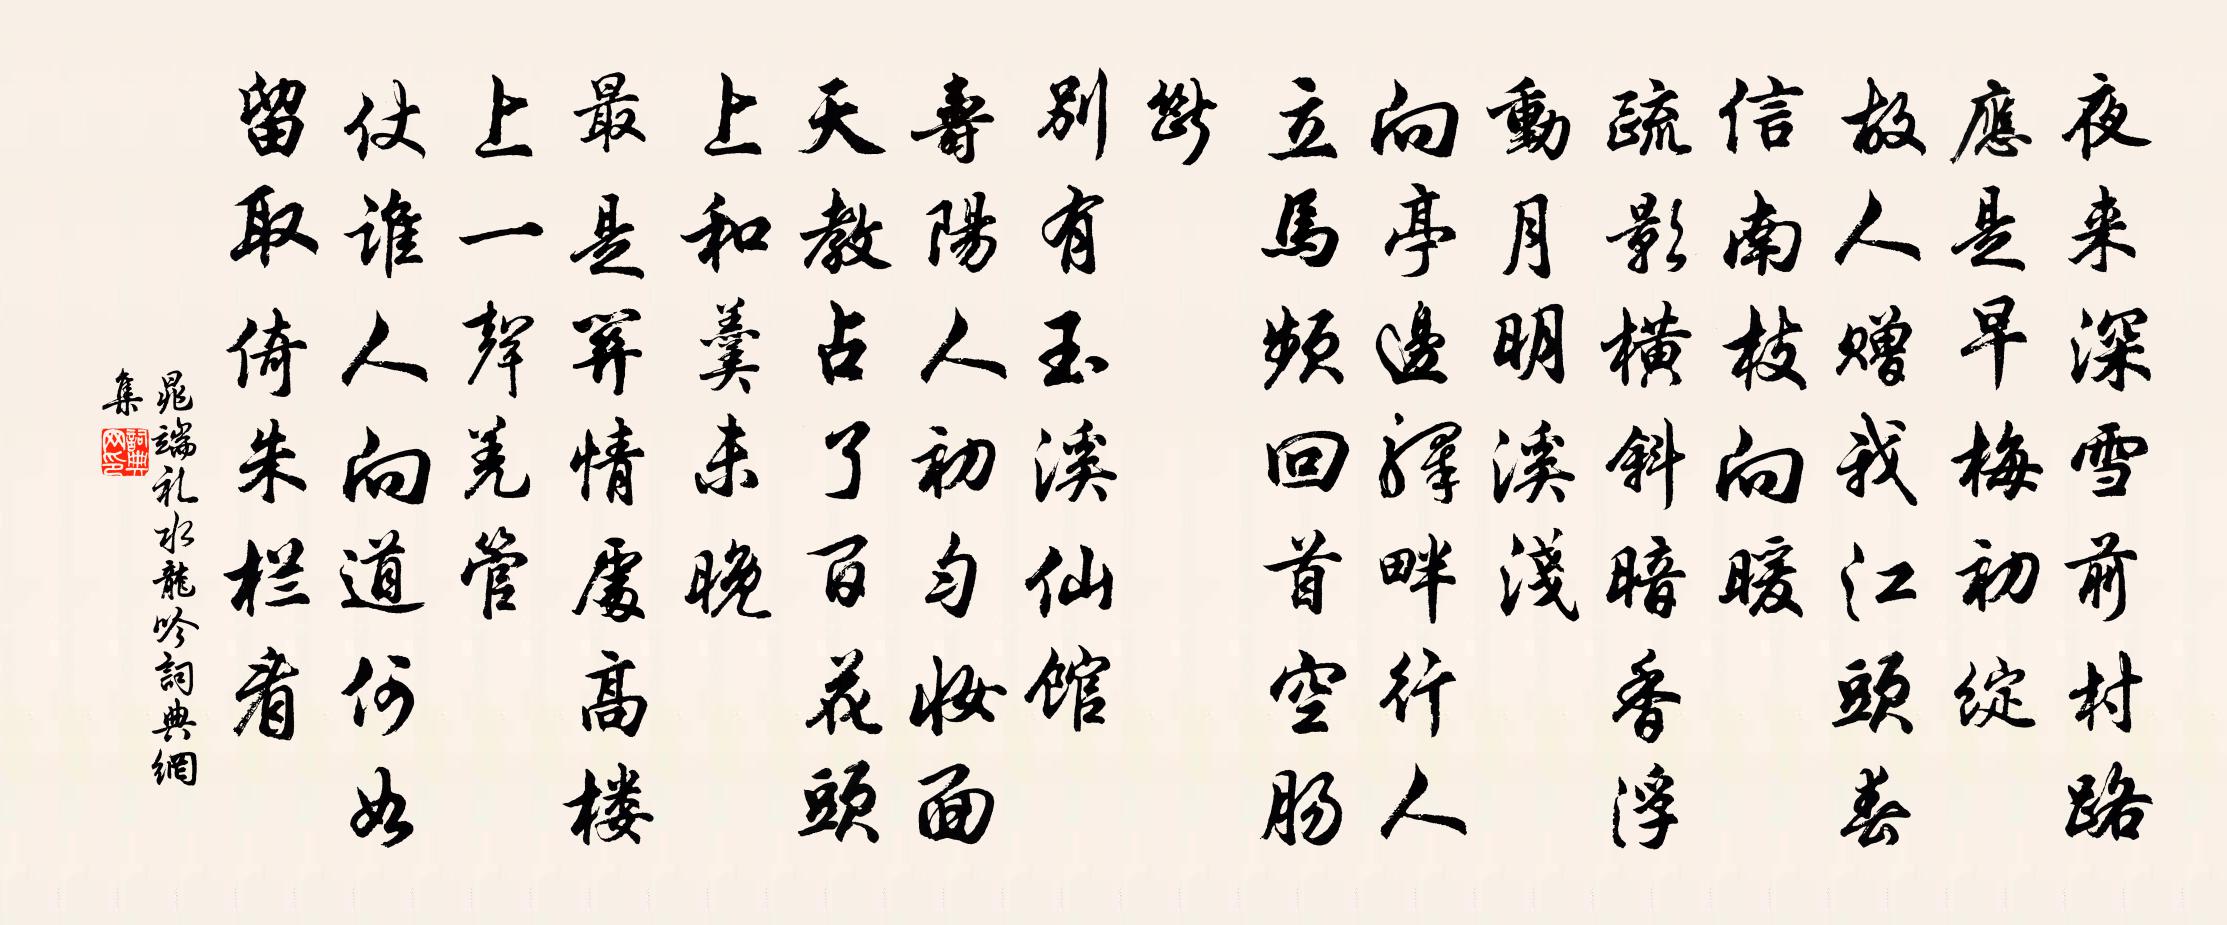 夜来深雪前村路
應是早梅初綻
故人赠我江頭春
信南枝向暖
疏影横斜暗香浮
動月明溪淺
向亭邊驛畔行人
立馬頻回首空肠
斷
别有玉溪仙館
壽陽人初匀妆面
天教占了百花頭
上和羹未晚
最是關情處高楼
上一聲羌管
仗谁人向道何如
留取倚朱栏看
晁端礼水龍吟詞典網
集
詞典
网印